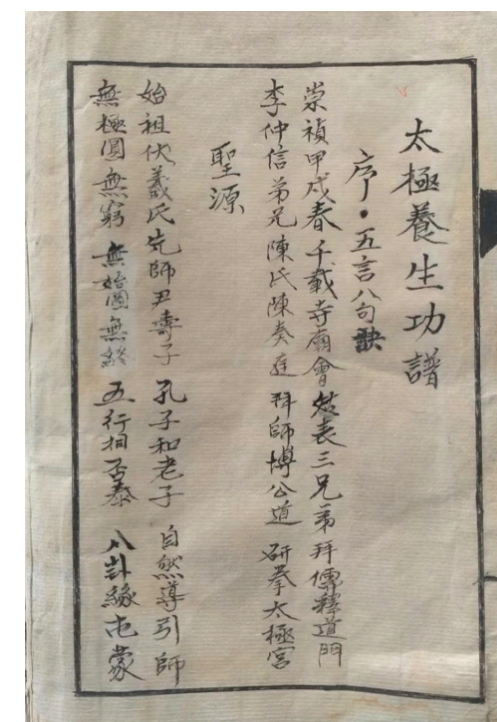 太極養生功譜
序·五言八句訣
崇禎甲戌春 千載寺廟會 茲表三兄弟 拜傳釋道門
李仲信弟兄 陳氏陳奏庭 拜師博公道 研拳太極宮
聖源
始祖伏羲氏 先師尹壽子 孔子和老子 自然導引師
無極圓無窮 無始圓無終 五行相否泰 八卦緣屯蒙